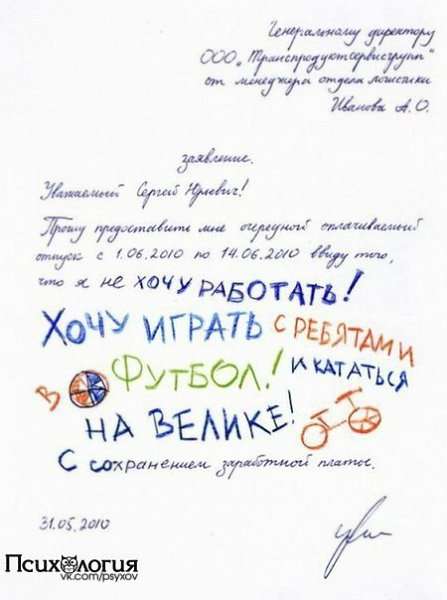 Генеральному директору
ООО „Транспродуктсервисгрупп"
от менеджера отдела логистики
Иванова А.О.
заявление.
Уважаемый Сергей Юрьевич!
Прошу предоставить мне очередной оплачиваемый
отпуск с 1.06.2010 по 14.06.2010 ввиду того,
что я не ХОЧУ РАБОТАТЬ!
ХОЧУ ИГРАТЬ С РЕБЯТАМИ
В ФУТБОЛ! И КАТАТЬСЯ
НА ВЕЛИКЕ!
С сохранением заработной платы.
31.05.2010
Психология
vk.com/psyxov